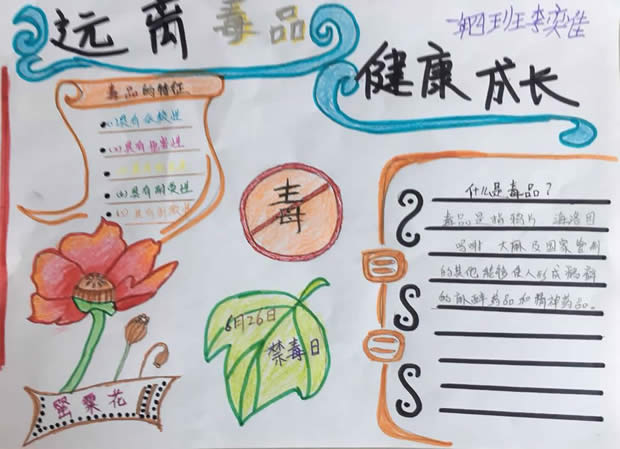 远离毒品
健康成长
班李奕佳
毒品的特征
(1)具有
(2)具有危害性
(4)具有耐受性
毒
6月26日
禁毒日
罂粟花
什么是毒品？
毒品是指鸦片 海洛因
吗啡 大麻及国家管制
的其他能够使人形成瘾癖
的麻醉药品和精神药品。